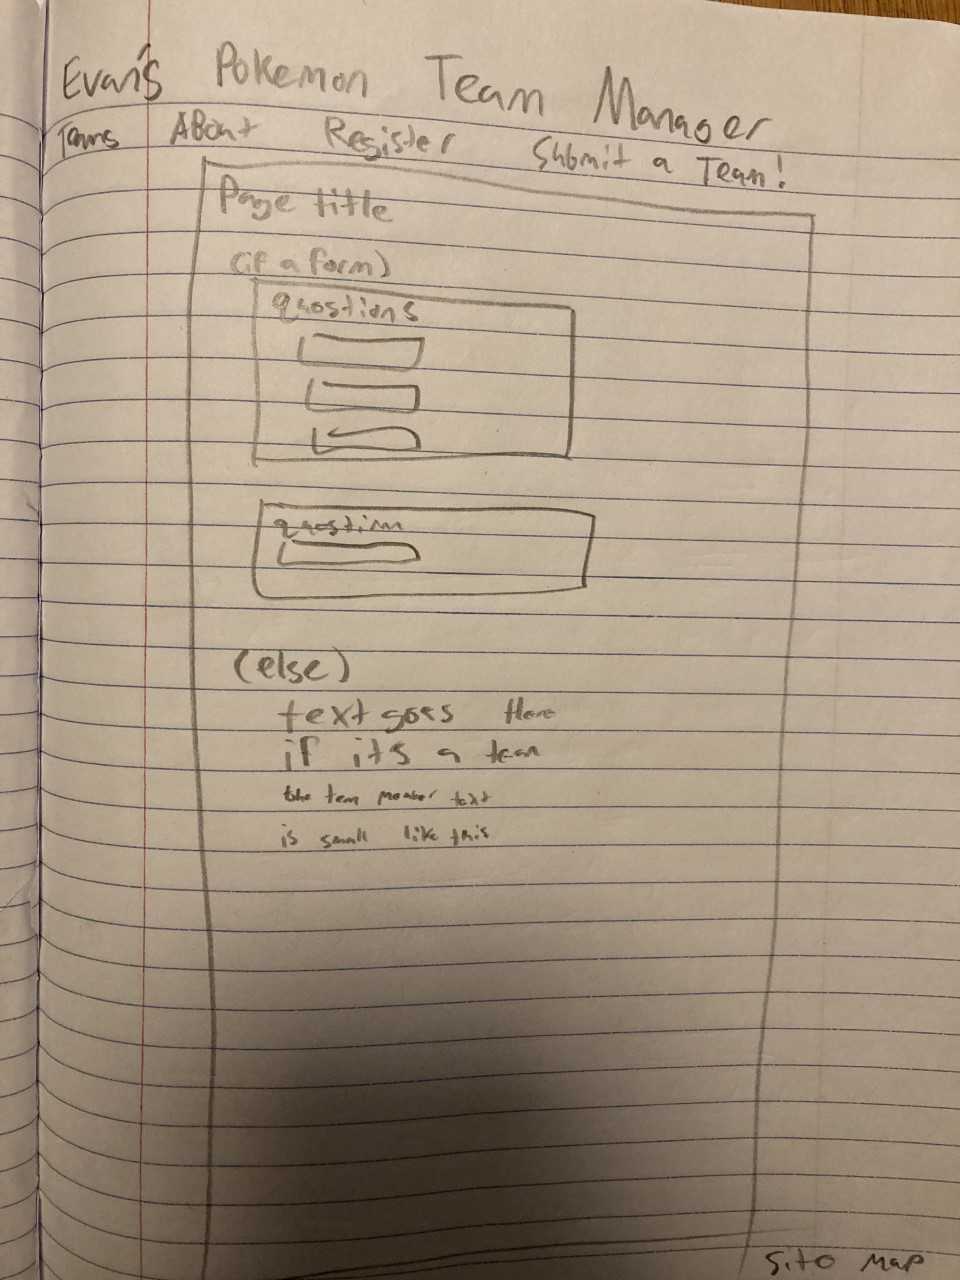 Evan's Pokemon Team Manager
Teams About Register Submit a Team!
Page title
(if a form)
questions
question
(else)
text goes Here
if its a team
the tem member text
is small like this
Site Map